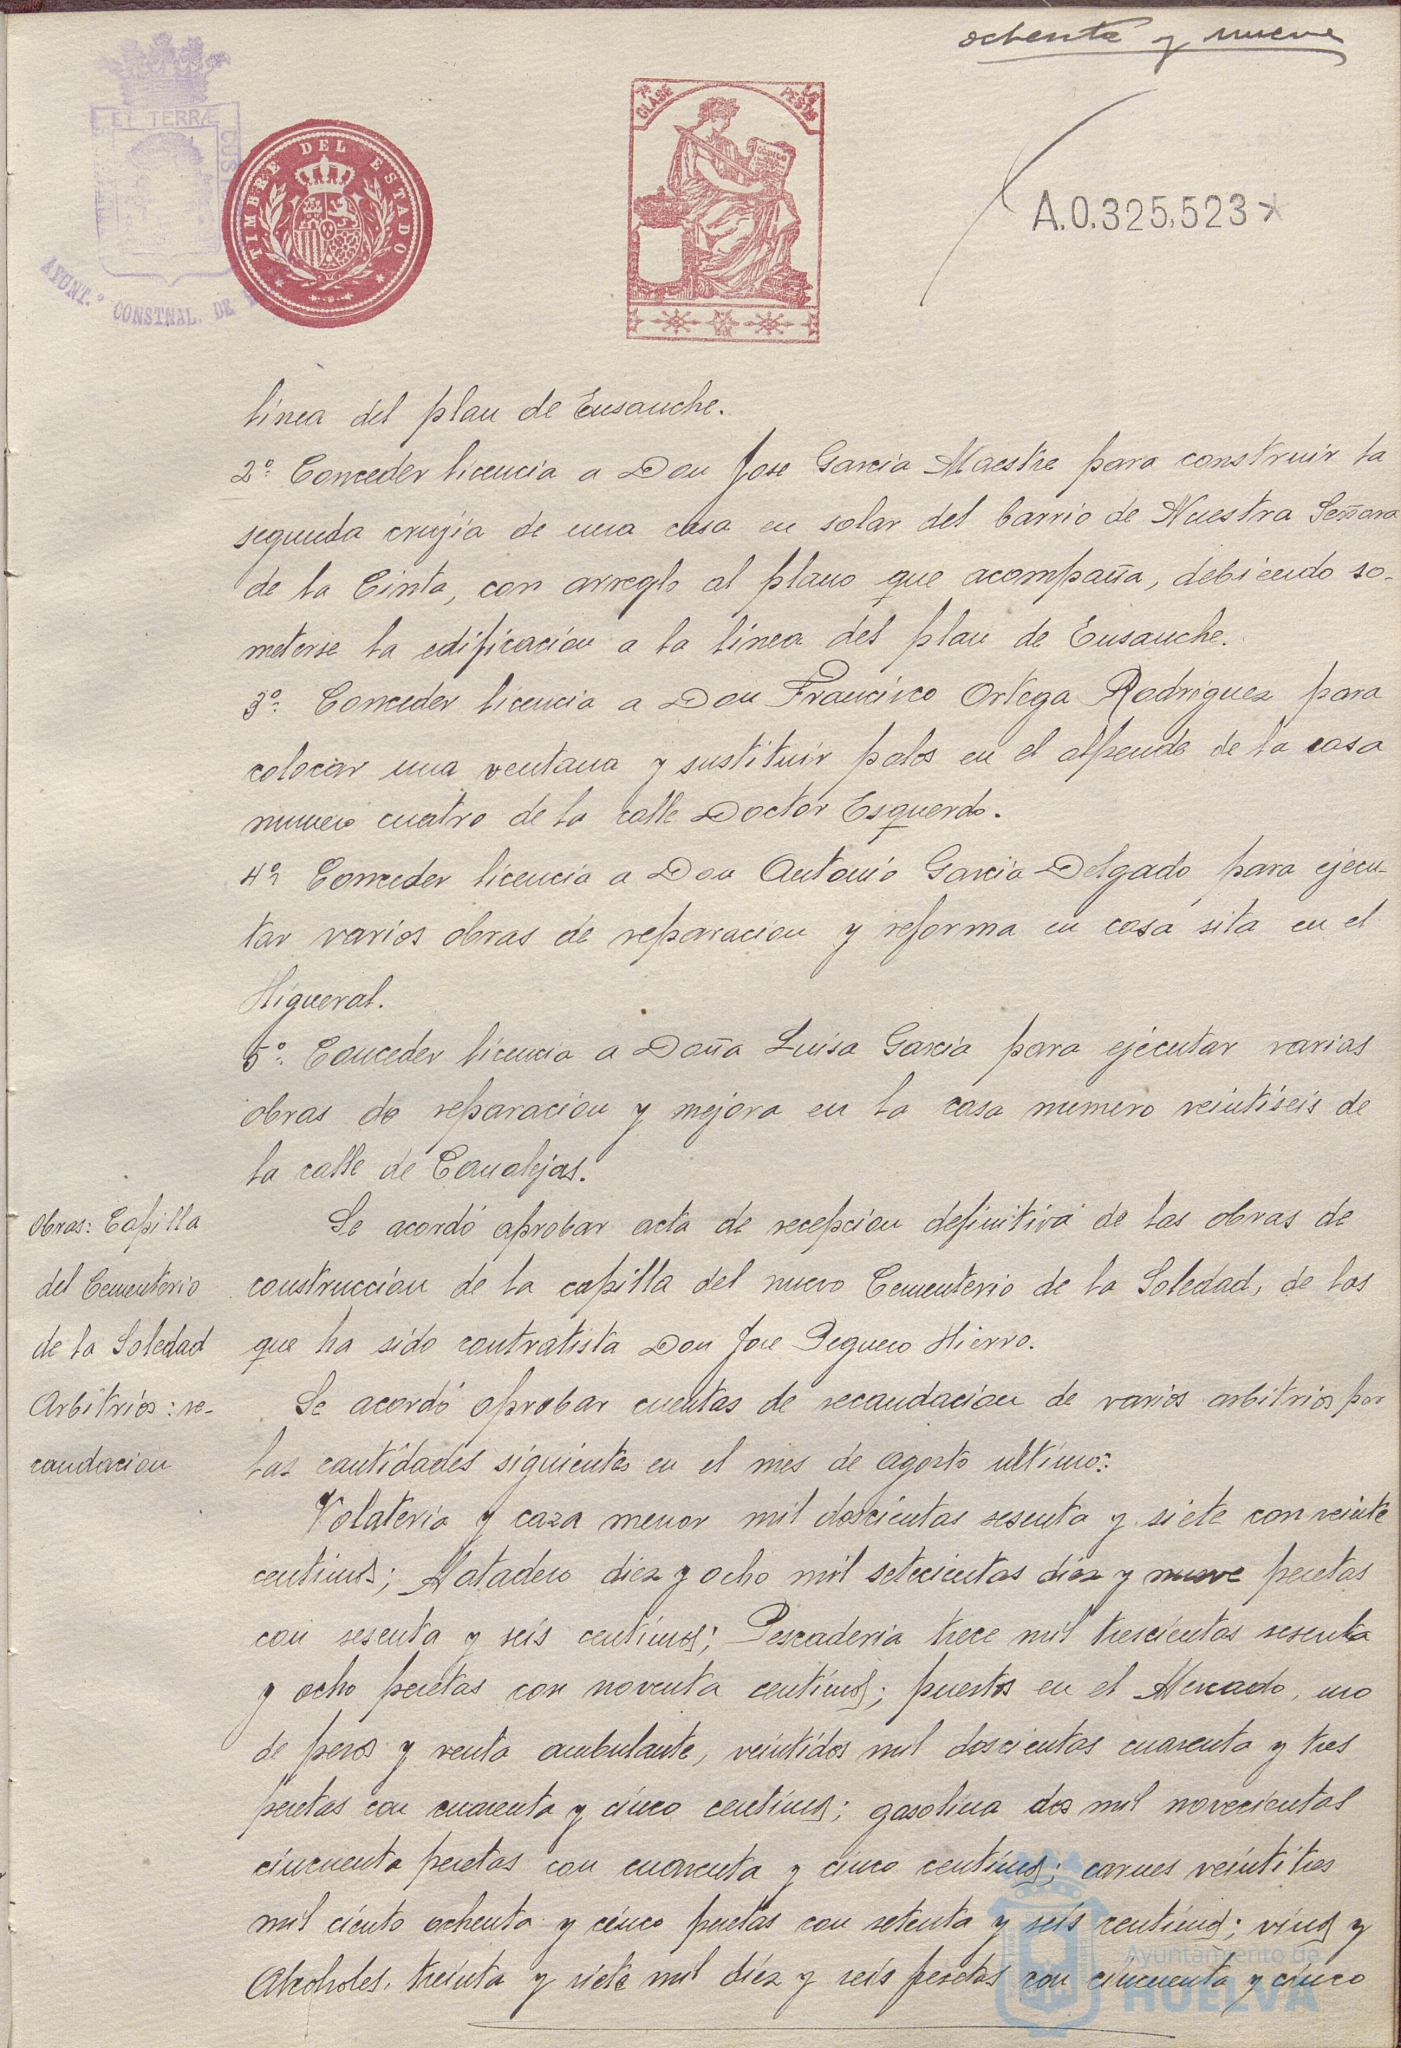 ochenta y nueve
ET TERRÆ CUS
AYUNT.º CONSTNAL. DE
TIMBRE DEL ESTADO
7ª CLASE PESTAS
A.0.325,523*
línea del plan de Ensanche.
2º. Conceder licencia a Don Jose Garcia Maestre para construir la
segunda crujía de una casa en solar del barrio de Nuestra Señora
de la Cinta, con arreglo al plano que acompaña, debiendo so-
meterse la edificacion a la línea del plan de Ensanche.
3º. Conceder licencia a Don Francisco Ortega Rodriguez para
colocar una ventana y sustituir palos en el alpende de la casa
numero cuatro de la calle Doctor Esquerdo.
4º. Conceder licencia a Don Antonio Garcia Delgado para ejecu-
tar varios obras de reparacion y reforma en casa sita en el
Higueral.
5º. Conceder licencia a Doña Luisa Garcia para ejecutar varias
obras de reparacion y mejora en la casa numero veintiseis de
la calle de Canalejas.
Obras: Capilla
del Cementerio
de la Soledad
Se acordó aprobar acta de recepcion definitiva de las obras de
construccion de la capilla del nuevo Cementerio de la Soledad, de las
que ha sido contratista Don Jose Peguero Hierro.
Arbitrios: re-
caudacion
Se acordó aprobar cuentas de recaudacion de varios arbitrios por
las cantidades siguientes en el mes de agosto ultimo:
Volateria y caza menor mil doscientas sesenta y siete con veinte
centimos; Matadero diez y ocho mil setecientas diez y nueve pesetas
con sesenta y seis centimos; Pescaderia trece mil trescientas sesenta
y ocho pesetas con noventa centimos; puestos en el Mercado, uso
de pesos y venta ambulante, veintidos mil doscientas cuarenta y tres
pesetas con cuarenta y cinco centimos; gasolina dos mil novecientas
cincuenta pesetas con cuarenta y cinco centimos; carnes veintitres
mil ciento ochenta y cinco pesetas con setenta y seis centimos; vinos y
Alcoholes, treinta y siete mil diez y seis pesetas con cincuenta y cinco
Ayuntamiento de
HUELVA